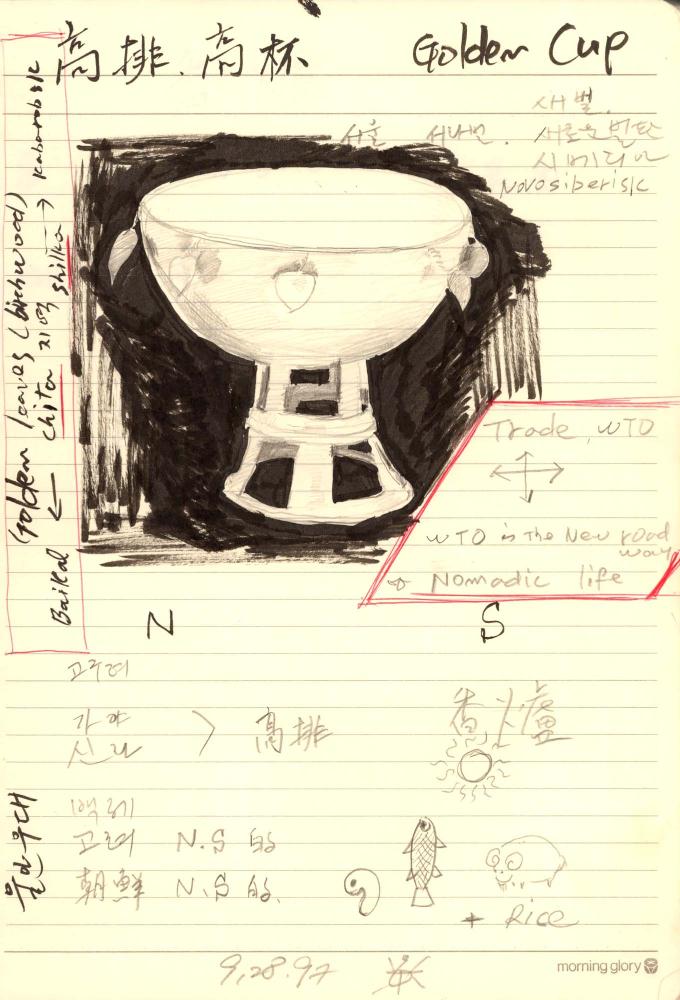 高排. 高杯 Golden Cup
새벌.
서울 서나벌. 새로운벌판
시베리아
Novosiberisk
Baikal ← chita 지역 shilka → Kaborobsk
Golden leaves (birchwood)
Trade, WTO
WTO is the New road
way
☆ Nomadic life
N S
고구려
가야
신라
> 高排
香爐
백제
고려 N.S 的
朝鮮 N.S 的.
+ Rice
9,28.97
morning glory